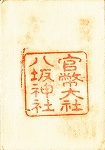 官幣大社
八坂神社